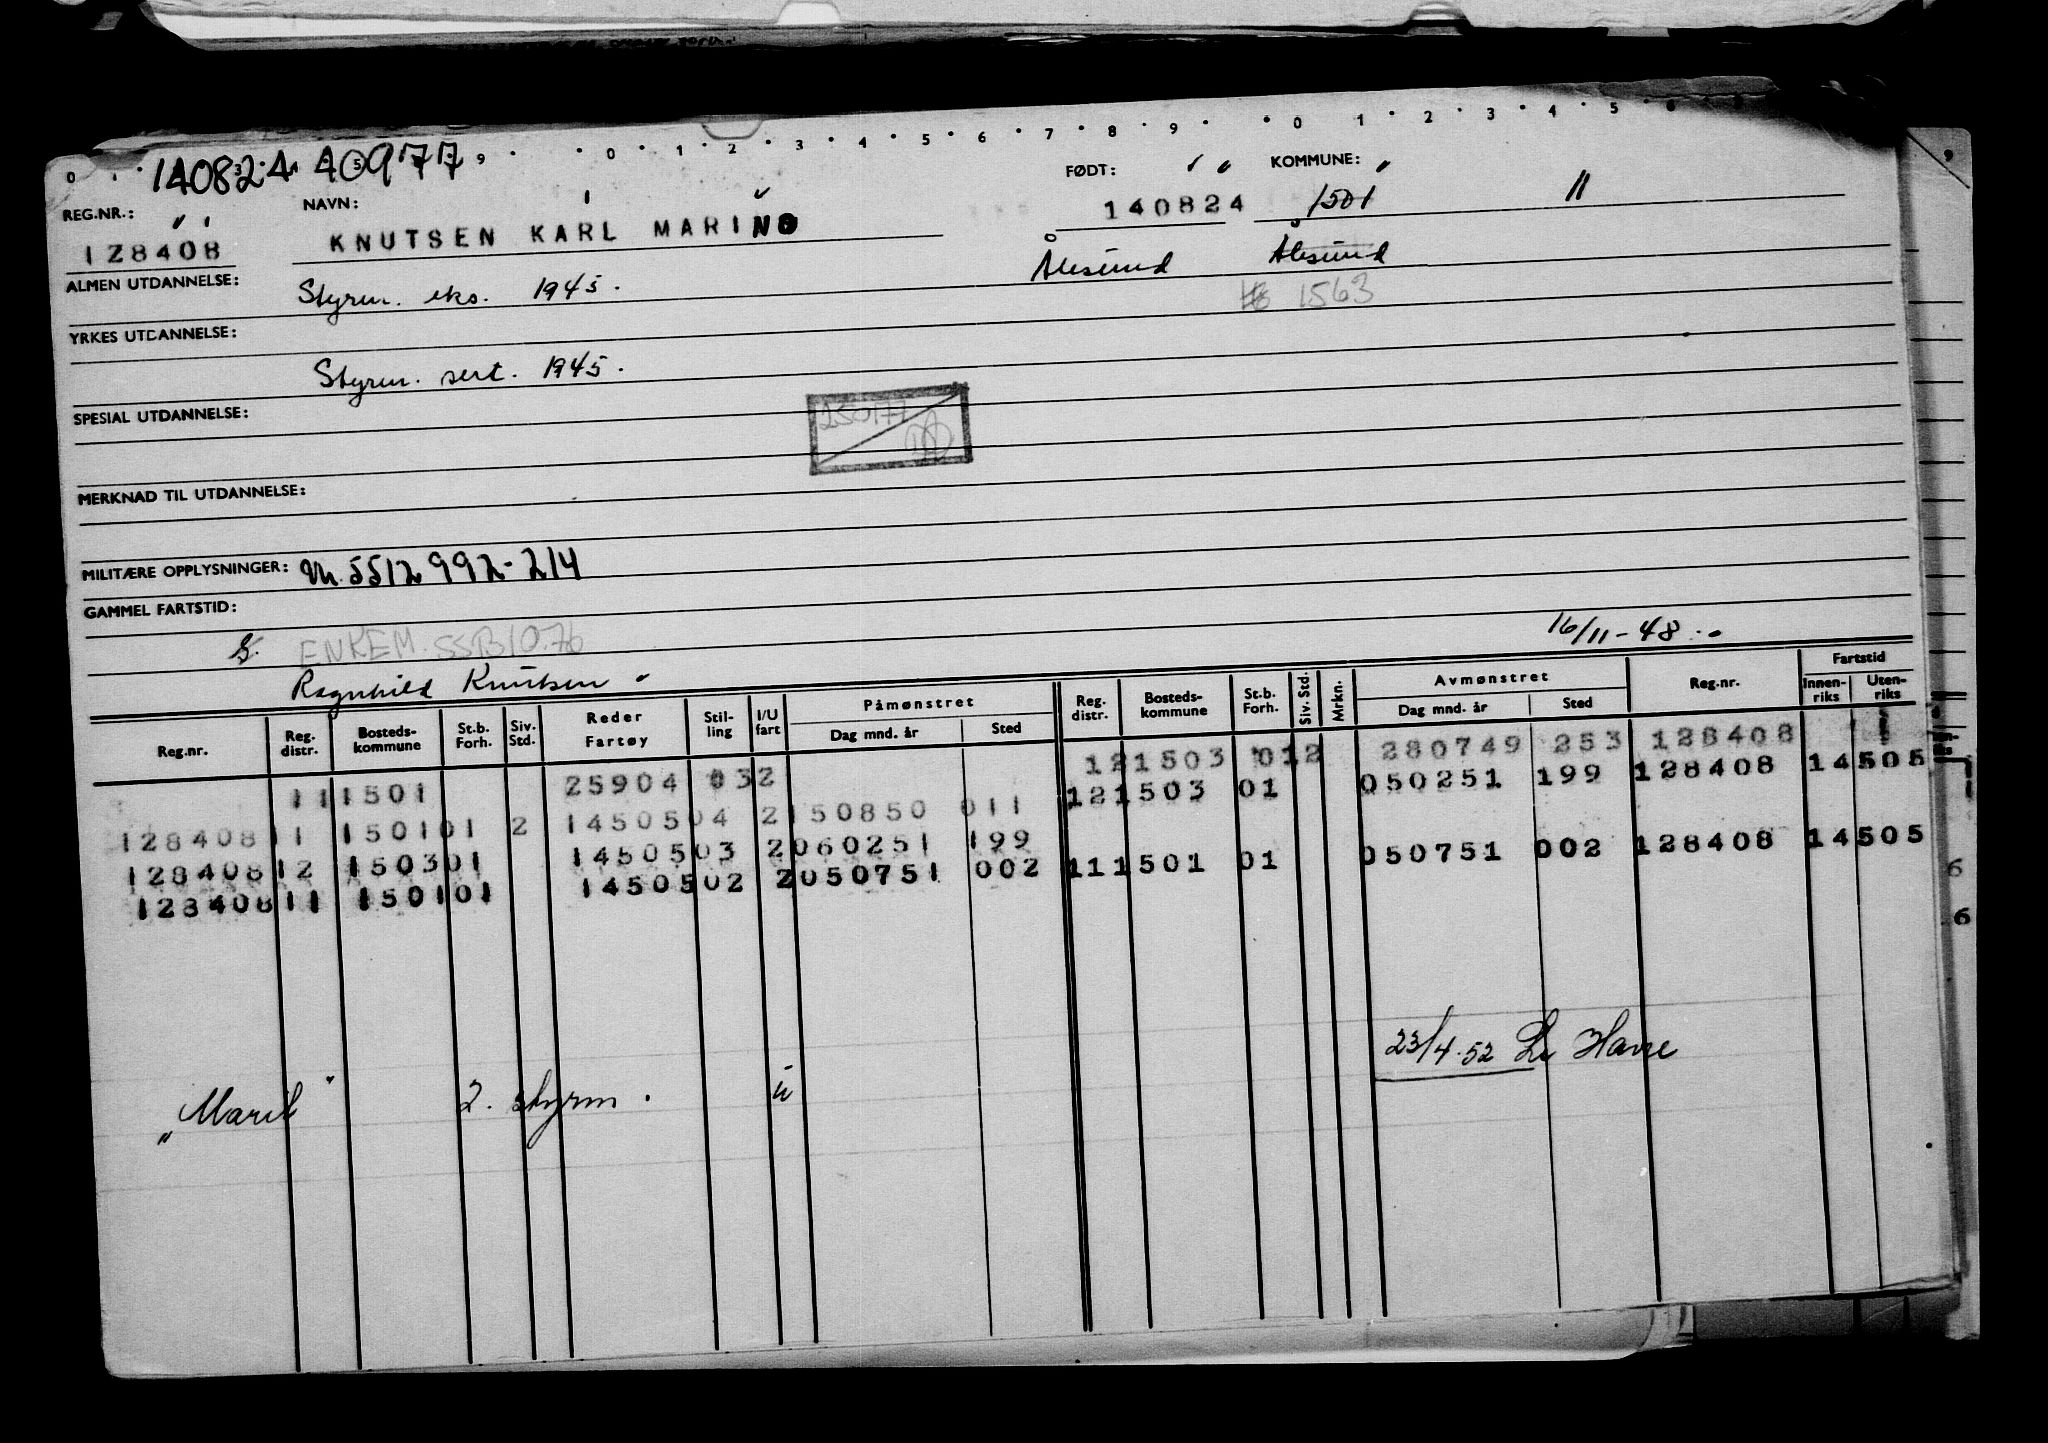 0 1 2 3 4 5 6 7 8 9 0 1 2 3 4 5
14082.4 40977
REG.NR.: NAVN: FØDT: KOMMUNE:
128408 KNUTSEN KARL MARINO 140824 1501 11
Ålesund Ålesund
1563
ALMEN UTDANNELSE: Styrm. eks. 1945.
YRKES UTDANNELSE:
Styrm. sert. 1945.
SPESIAL UTDANNELSE:
250177
MERKNAD TIL UTDANNELSE:
MILITÆRE OPPLYSNINGER: M. 5512 992-214
GAMMEL FARTSTID:
G. ENKEM. SSB 10.76
16/11-48
Ragnhild Knutsen
Reg.nr. Reg. distr. Bosteds-kommune St.b. Forh. Siv. Std. Reder Fartøy Stil-ling I/U fart Påmønstret Dag mnd. år Sted Reg. distr. Bosteds-kommune St.b. Forh. Siv. Std. Mrkn. Avmønstret Dag mnd. år Sted Reg.nr. Fartstid Innen-riks Uten-riks
11 1501 25904 032 12 1503 012 280749 253 128408
128408 11 1501 01 2 14505 04 2 150850 011 12 1503 01 050251 199 128408 14505
128408 12 1503 01 14505 03 2 060251 199 11 1501 01 050751 002 128408 14505
128408 11 1501 01 14505 02 2 050751 002
23/4.52 Le Havre
"Marit" 2. styrm. u
6
6